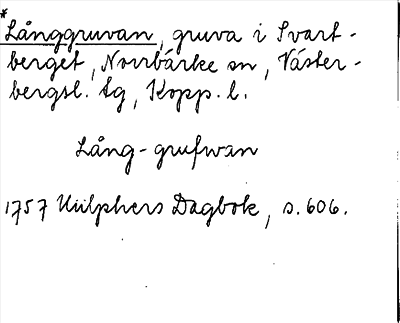 *Långgruvan, gruva i Svart-
berget, Norrbärke sn, Väster-
bergsl. tg, Kopp. l.
Lång-grufwan
1757 Hülphers Dagbok, s. 606.